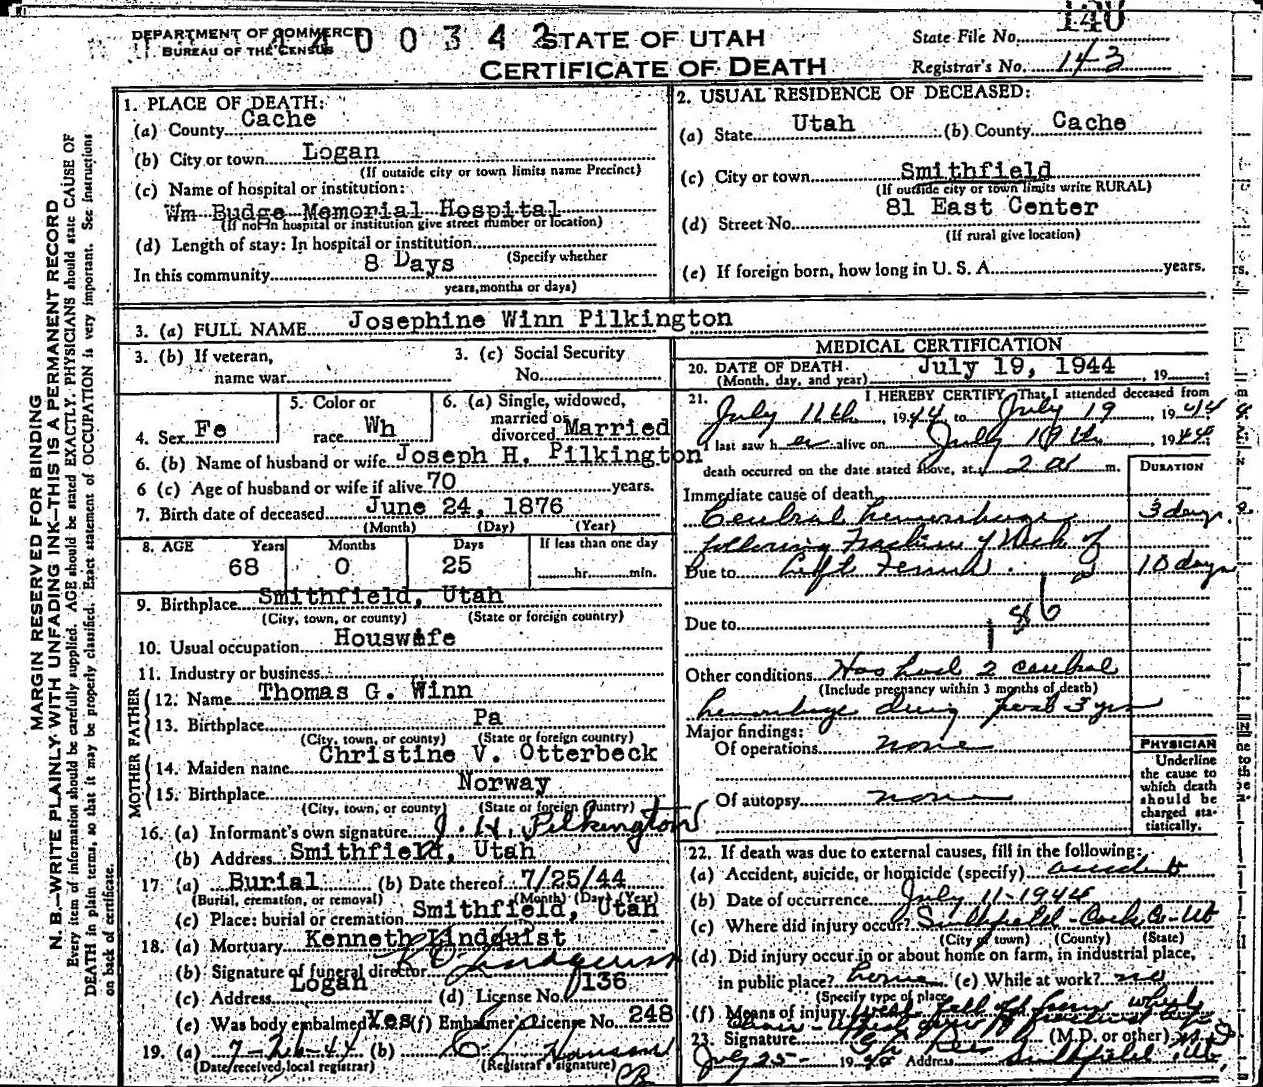 DEPARTMENT OF COMMERCE
BUREAU OF THE CENSUS
STATE OF UTAH
CERTIFICATE OF DEATH
State File No. 140
Registrar's No. 143
MARGIN RESERVED FOR BINDING
N. B.—WRITE PLAINLY WITH UNFADING INK—THIS IS A PERMANENT RECORD
Every item of information should be carefully supplied. AGE should be stated EXACTLY. PHYSICIANS should state CAUSE OF
DEATH in plain terms, so that it may be properly classified. Exact statement of OCCUPATION is very important. See instructions
on back of certificate.
1. PLACE OF DEATH:
(a) County Cache
(b) City or town Logan
(If outside city or town limits name Precinct)
(c) Name of hospital or institution:
Wm Budge Memorial Hospital
(If not in hospital or institution give street number or location)
(d) Length of stay: In hospital or institution
(Specify whether
In this community 8 Days
years, months or days)
2. USUAL RESIDENCE OF DECEASED:
(a) State Utah (b) County Cache
(c) City or town Smithfield
(If outside city or town limits write RURAL)
(d) Street No. 81 East Center
(If rural give location)
(e) If foreign born, how long in U. S. A. years.
3. (a) FULL NAME Josephine Winn Pilkington
3. (b) If veteran,
name war
3. (c) Social Security
No.
4. Sex Fe
5. Color or
race Wh
6. (a) Single, widowed,
married or
divorced Married
6. (b) Name of husband or wife Joseph H. Pilkington
6 (c) Age of husband or wife if alive 70 years.
7. Birth date of deceased June 24, 1876
(Month) (Day) (Year)
8. AGE Years Months Days If less than one day
68 0 25 hr. min.
9. Birthplace Smithfield, Utah
(City, town, or county) (State or foreign country)
10. Usual occupation Houswife
11. Industry or business
FATHER
12. Name Thomas G. Winn
13. Birthplace Pa
(City, town, or county) (State or foreign country)
MOTHER
14. Maiden name Christine V. Otterbeck
15. Birthplace Norway
(City, town, or county) (State or foreign country)
16. (a) Informant's own signature J. H. Pilkington
(b) Address Smithfield, Utah
17 (a) Burial (b) Date thereof 7/25/44
(Burial, cremation, or removal) (Month) (Day) (Year)
(c) Place: burial or cremation Smithfield, Utah
18. (a) Mortuary Kenneth Lindquist
(b) Signature of funeral director Lindquist
(c) Address Logan (d) License No. 136
(e) Was body embalmed Yes (f) Embalmer's License No. 248
19. (a) 7-26-44 (b) Hanson
(Date received local registrar) (Registrar's signature)
MEDICAL CERTIFICATION
20. DATE OF DEATH July 19, 1944
(Month, day, and year) , 19
21. I HEREBY CERTIFY, That I attended deceased from
July 11th, 1944 to July 19 1944
I last saw her alive on July 19th, 1944
death occurred on the date stated above, at 2 a m.
DURATION
Immediate cause of death
Cerebral hemorrhage 3 days
following Fracture of Neck of
Due to Left Femur. 10 days
186
Due to
Other conditions Has had 2 cerebral
(Include pregnancy within 3 months of death)
hemorrhage during past 3 yrs
Major findings:
Of operations none
Of autopsy none
PHYSICIAN
Underline
the cause to
which death
should be
charged sta-
tistically.
22. If death was due to external causes, fill in the following:
(a) Accident, suicide, or homicide (specify) accident
(b) Date of occurrence July 11-1944
(c) Where did injury occur? Smithfield - Cache Co - Ut
(City or town) (County) (State)
(d) Did injury occur in or about home on farm, in industrial place,
in public place? home (e) While at work? no
(Specify type of place)
(f) Means of injury fall off wheel
chair
23. Signature (M.D. or other) M D
July 25 - 1944 Address Smithfield Ut